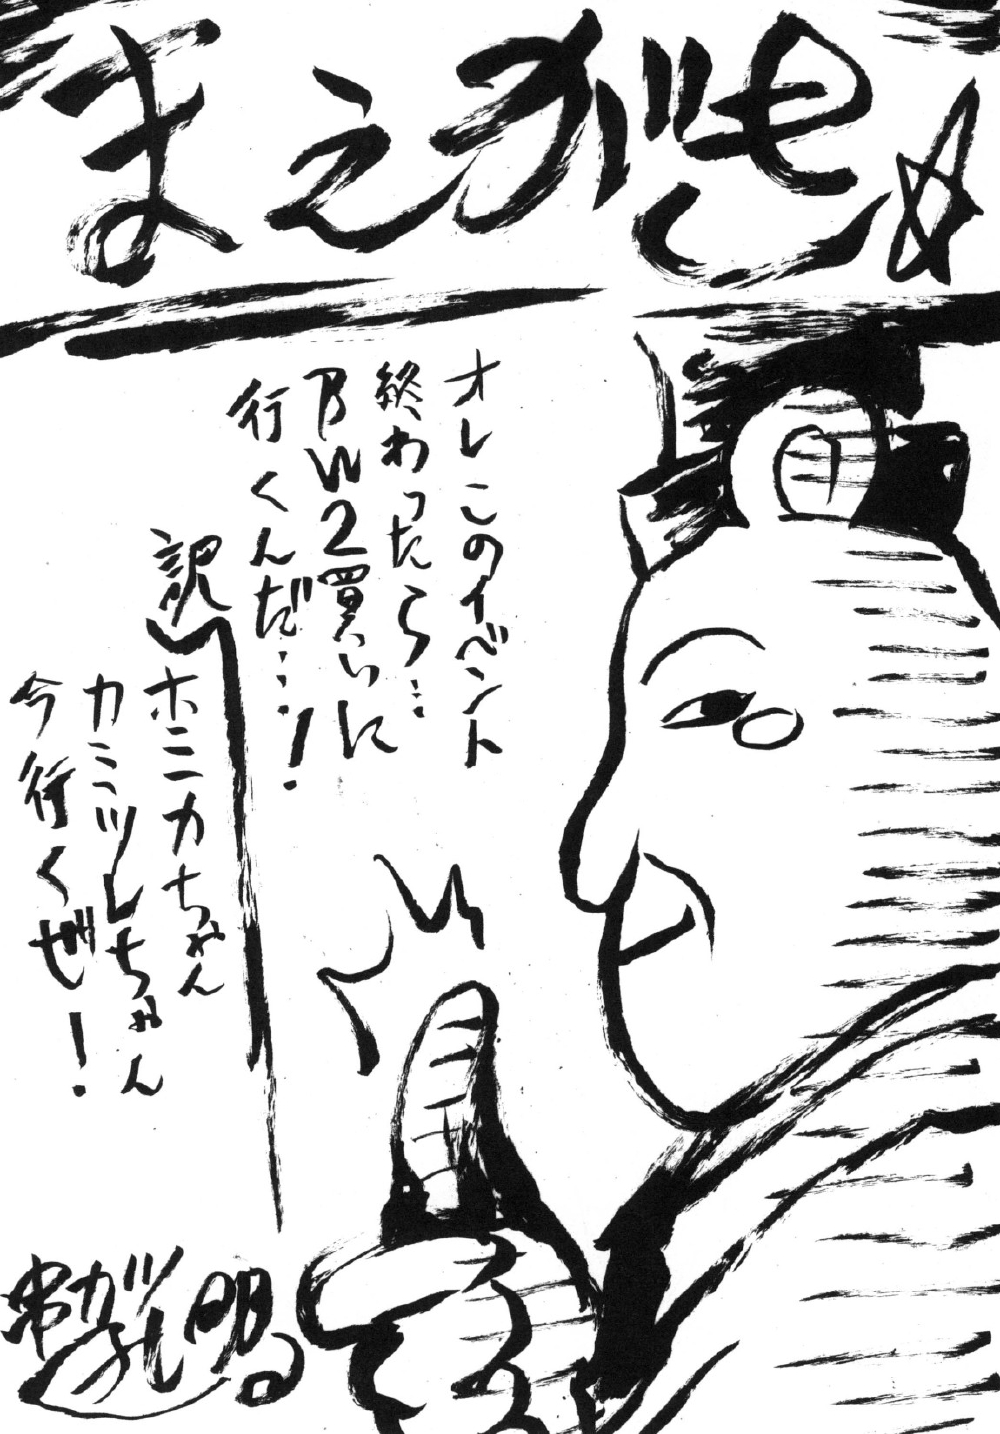 まえがき☆
オレこのイベント
終わったら…
BW2買いに
行くんだ…!
訳
ホニカちゃん
カミツレちゃん
今行くぜ!